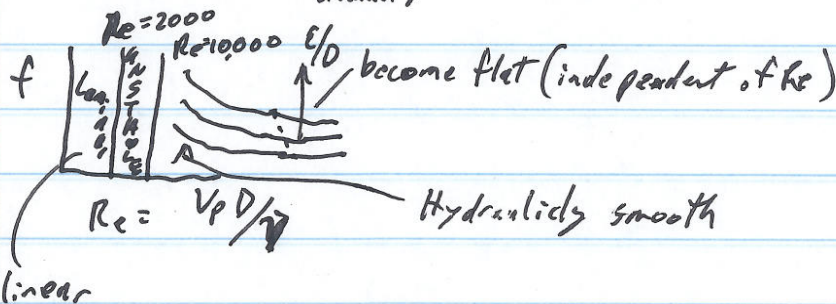 Re=2000
Re=10,000
ε/D
f
Laminar
UNSTABLE
become flat (independent of Re)
Re = VρD/η
Hydraulicly smooth
linear